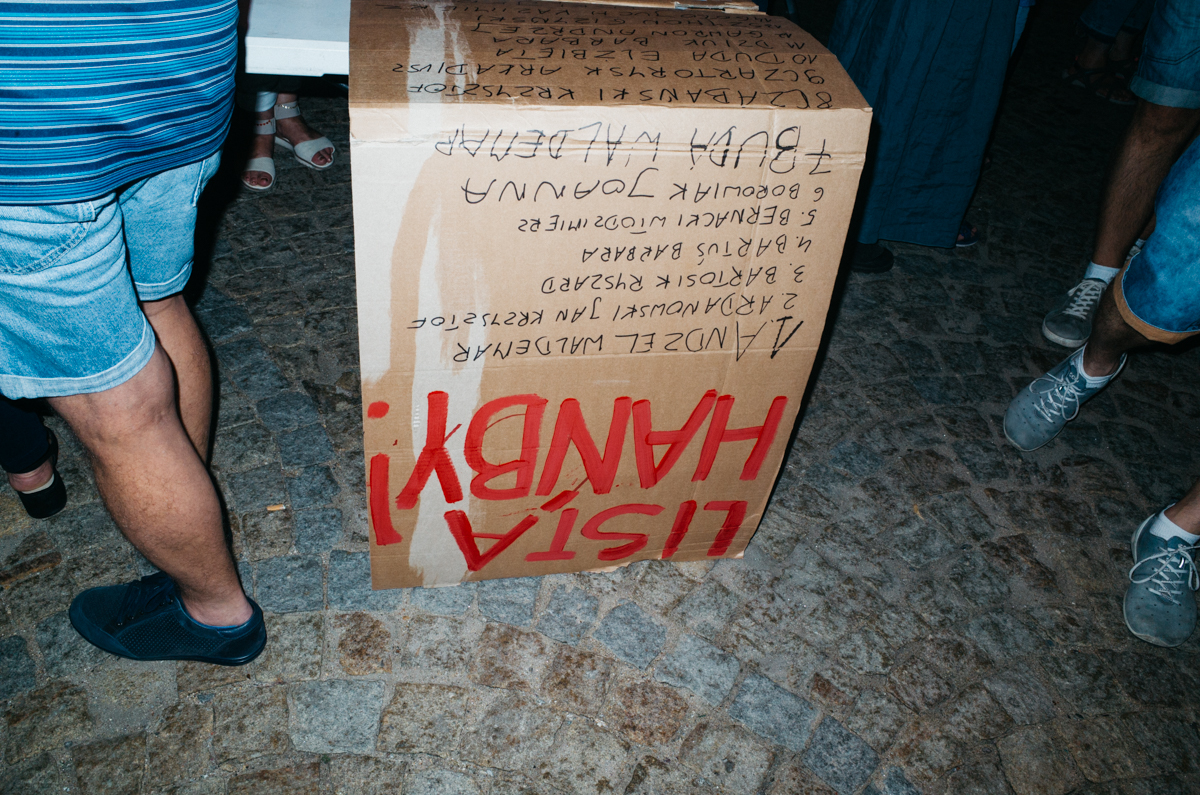 LISTA
HAŃBY!
1. ANDZEL WALDEMAR
2. ARDANOWSKI JAN KRZYSZTOF
3. BARTOSIK RYSZARD
4. BARTUŚ BARBARA
5. BERNACKI WŁODZIMIERZ
6 BOROWIAK JOANNA
7 BUDA WALDEMAR
8 CZABAŃSKI KRZYSZTOF
9 CZARTORYSK ARKADIUSZ
10 DUDA ELZBIETA
11 DZIUK BARBARA
12 GAWRON ANDRZEJ